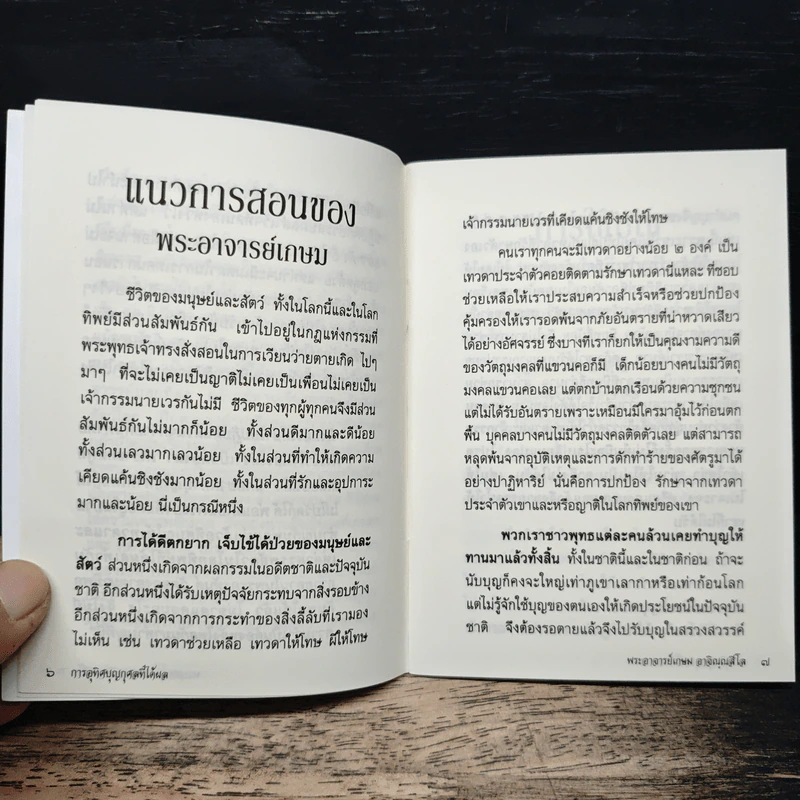 แนวการสอนของ
พระอาจารย์เกษม
ชีวิตของมนุษย์และสัตว์ ทั้งในโลกนี้และในโลก
ทิพย์มีส่วนสัมพันธ์กัน เข้าไปอยู่ในกฎแห่งกรรมที่
พระพุทธเจ้าทรงสั่งสอนในการเวียนว่ายตายเกิด ไปๆ
มาๆ ที่จะไม่เคยเป็นญาติไม่เคยเป็นเพื่อนไม่เคยเป็น
เจ้ากรรมนายเวรกันไม่มี ชีวิตของทุกผู้ทุกคนจึงมีส่วน
สัมพันธ์กันไม่มากก็น้อย ทั้งส่วนดีมากและดีน้อย
ทั้งส่วนเลวมากเลวน้อย ทั้งในส่วนที่ทำให้เกิดความ
เคียดแค้นชิงชังมากน้อย ทั้งในส่วนที่รักและอุปการะ
มากและน้อย นี่เป็นกรณีหนึ่ง
การได้ดีตกยาก เจ็บไข้ได้ป่วยของมนุษย์และ
สัตว์ ส่วนหนึ่งเกิดจากผลกรรมในอดีตชาติและปัจจุบัน
ชาติ อีกส่วนหนึ่งได้รับเหตุปัจจัยกระทบจากสิ่งรอบข้าง
อีกส่วนหนึ่งเกิดจากการกระทำของสิ่งลี้ลับที่เรามอง
ไม่เห็น เช่น เทวดาช่วยเหลือ เทวดาให้โทษ ผีให้โทษ
๖ การอุทิศบุญกุศลที่ได้ผล
เจ้ากรรมนายเวรที่เคียดแค้นชิงชังให้โทษ
คนเราทุกคนจะมีเทวดาอย่างน้อย ๒ องค์ เป็น
เทวดาประจำตัวคอยติดตามรักษาเทวดานี่แหละ ที่ชอบ
ช่วยเหลือให้เราประสบความสำเร็จหรือช่วยปกป้อง
คุ้มครองให้เรารอดพ้นจากภัยอันตรายที่น่าหวาดเสียว
ได้อย่างอัศจรรย์ ซึ่งบางทีเราก็ยกให้เป็นคุณงามความดี
ของวัตถุมงคลที่แขวนคอก็มี เด็กน้อยบางคนไม่มีวัตถุ
มงคลแขวนคอเลย แต่ตกบ้านตกเรือนด้วยความซุกซน
แต่ไม่ได้รับอันตรายเพราะเหมือนมีใครมาอุ้มไว้ก่อนตก
พื้น บุคคลบางคนไม่มีวัตถุมงคลติดตัวเลย แต่สามารถ
หลุดพ้นจากอุบัติเหตุและการดักทำร้ายของศัตรูมาได้
อย่างปาฏิหาริย์ นั่นคือการปกป้อง รักษาจากเทวดา
ประจำตัวเขาและหรือญาติในโลกทิพย์ของเขา
พวกเราชาวพุทธแต่ละคนล้วนเคยทำบุญให้
ทานมาแล้วทั้งสิ้น ทั้งในชาตินี้และในชาติก่อน ถ้าจะ
นับบุญก็คงจะใหญ่เท่าภูเขาเลากาหรือเท่าก้อนโลก
แต่ไม่รู้จักใช้บุญของตนเองให้เกิดประโยชน์ในปัจจุบัน
ชาติ จึงต้องรอตายแล้วจึงไปรับบุญในสรวงสวรรค์
พระอาจารย์เกษม อาจิณฺณสีโล ๗